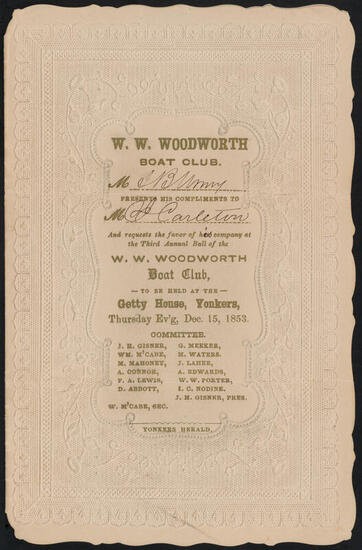 W. W. WOODWORTH
BOAT CLUB.
M
PRESENTS HIS COMPLIMENTS TO
M Carleton
And requests the favor of his company at
the Third Annual Ball of the
W. W. WOODWORTH
Boat Club,
— TO BE HELD AT THE —
Getty House, Yonkers,
Thursday Ev'g, Dec. 15, 1853.
COMMITTEE.
J. H. GISNER, G. MEEKER,
WM. McCABE, M. WATERS.
M. MAHONEY, J. LAHEE,
A. CONNOR, A. EDWARDS,
F. A. LEWIS, W. W. PORTER,
D. ABBOTT, I. C. NODINE.
J. H. GISNER, PRES.
W. McCABE, SEC.
YONKERS HERALD.